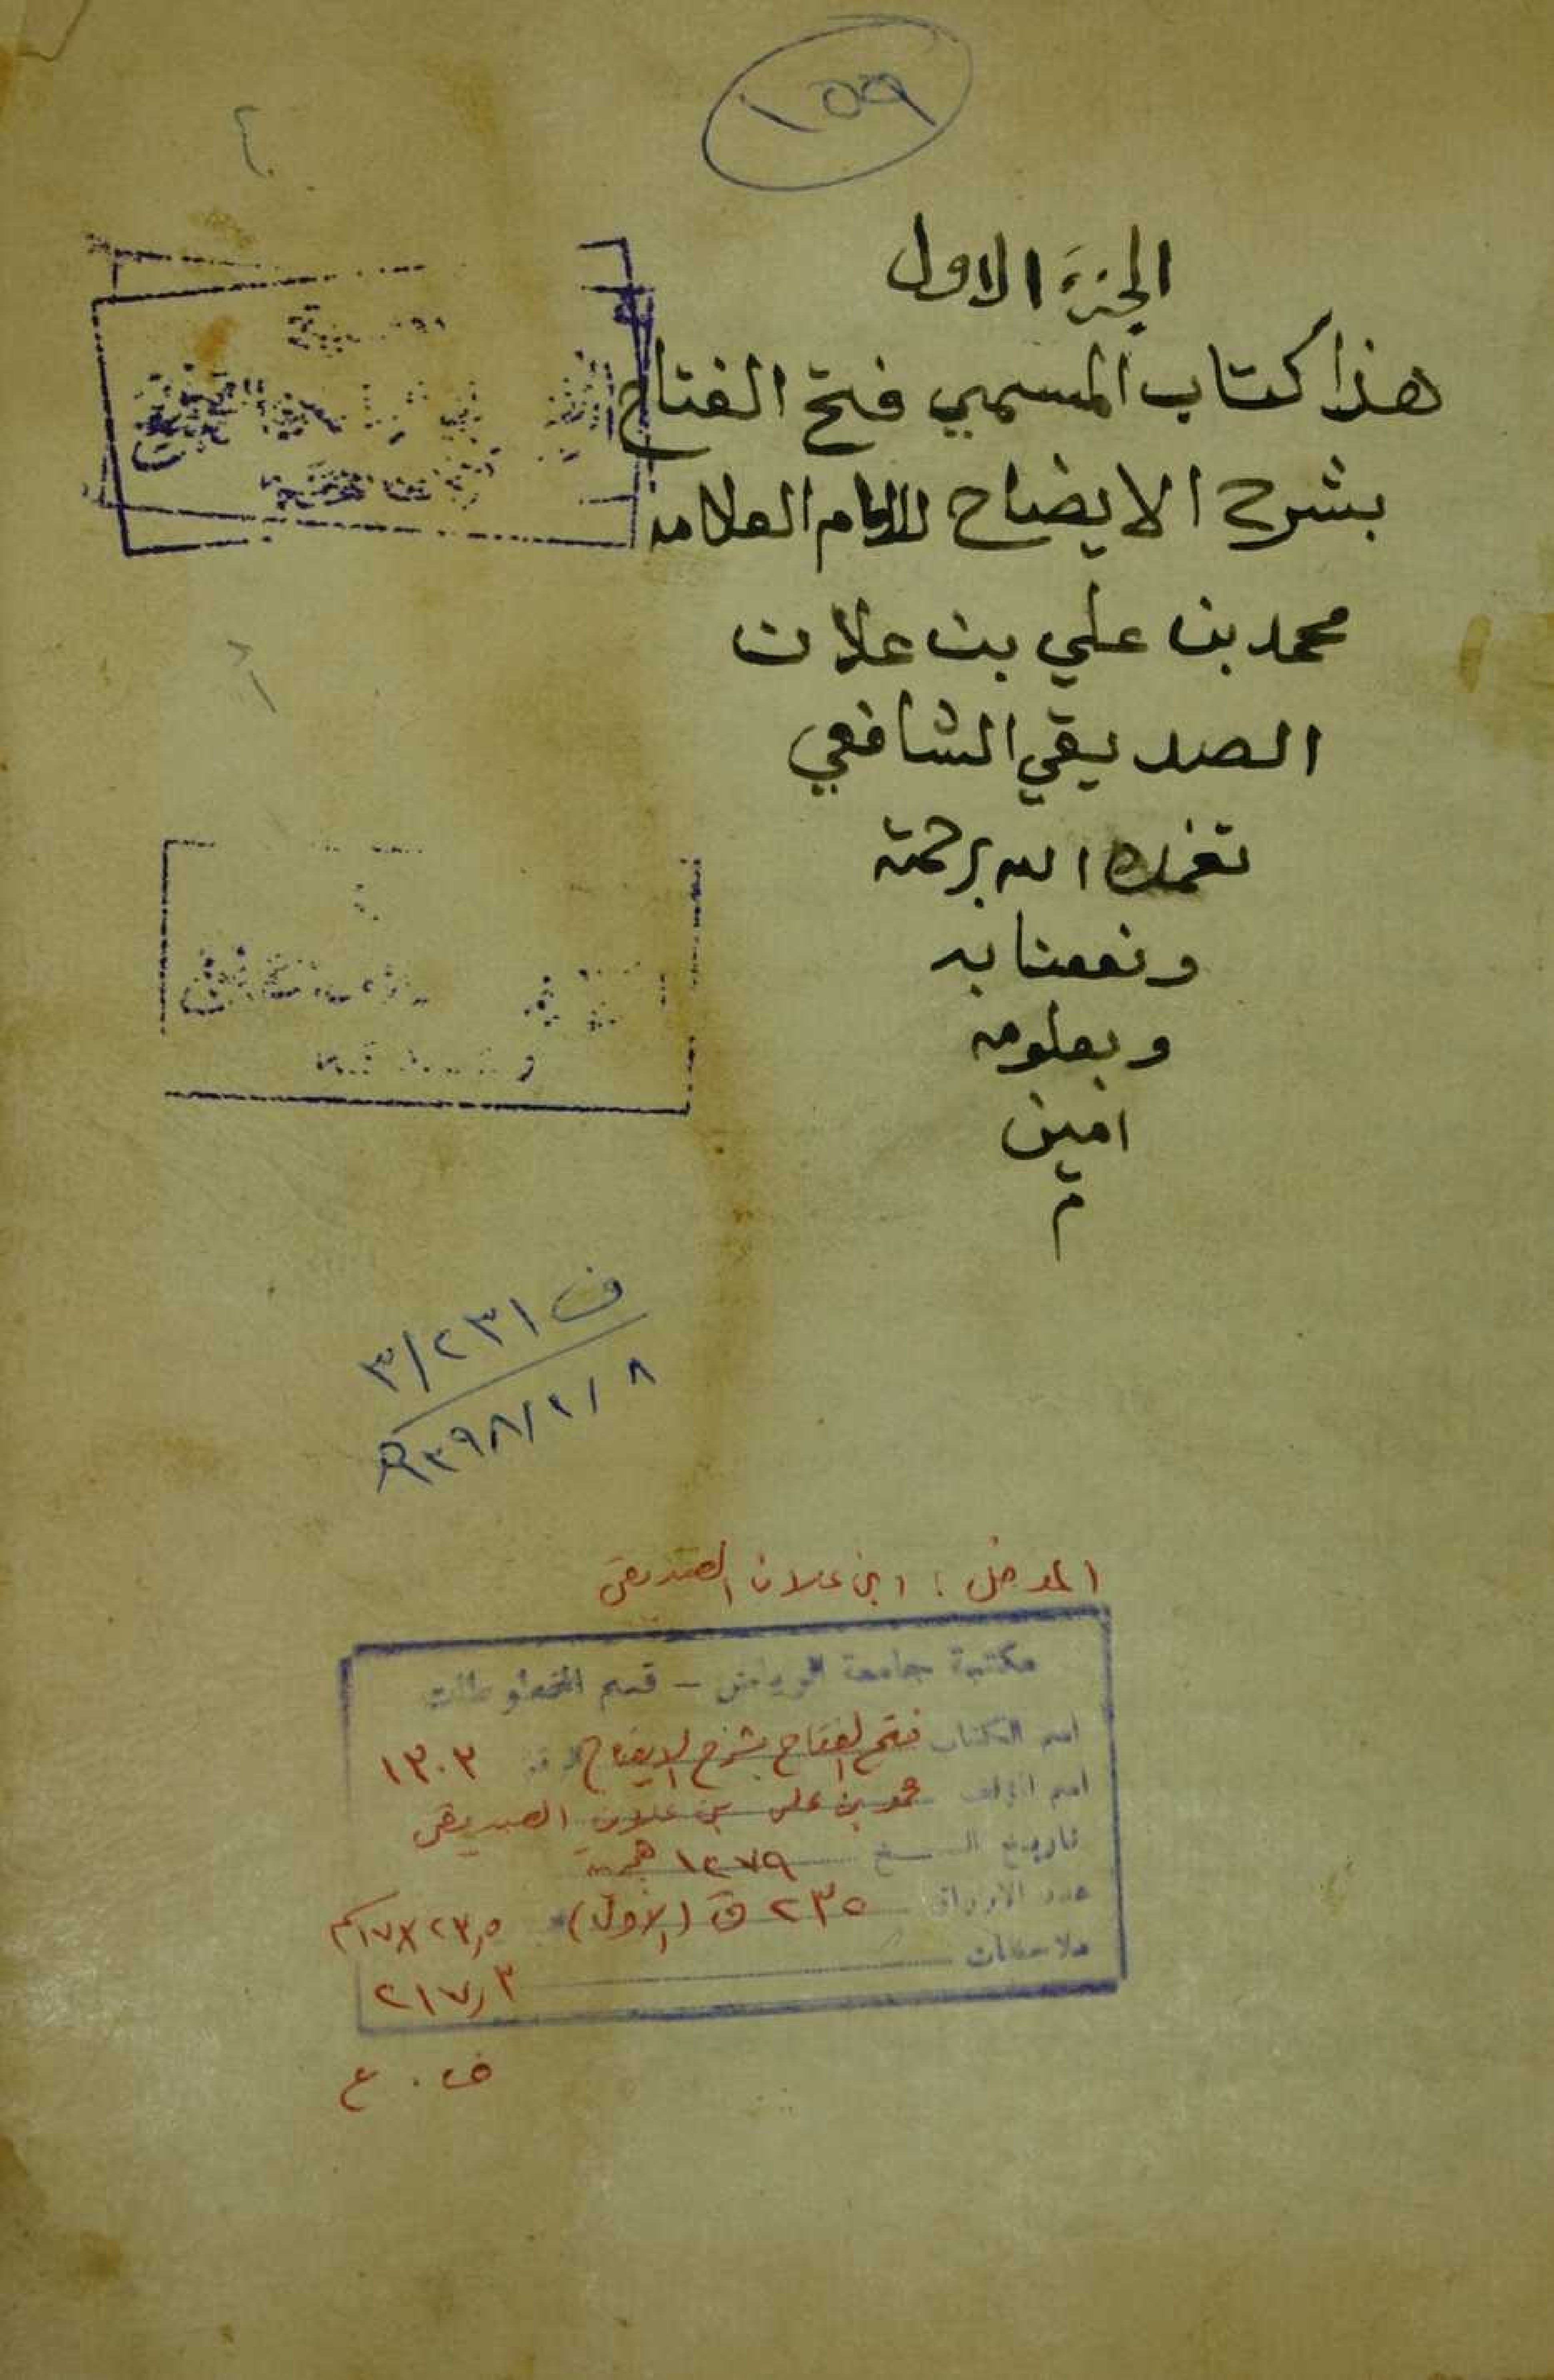 ١٥٩
الجزء الاول
هذا كتاب المسمي فتح الفتاح
بشرح الايضاح للامام العلامه
محمد بن علي بن علان
الصديقي الشافعي
تغمده الله برحمته
ونفعنا به
وبعلومه
امين
م
ف ٣/٢٣١
١٣٩٨/٢/٨ هـ
المدخل : ابن علان الصديقي
مكتبة جامعة الرياض - قسم المخطوطات
اسم الكتاب فتح الفتاح بشرح الايضاح ١٣٠٣
اسم المؤلف محمد بن علي بن علان الصديقي
تاريخ النسخ ١٢٧٩ هجرية
عدد الاوراق ٢٣٥ ق (الاول) ١٧×٢٣,٥ سم
ملاحظات ٢١٧,٣
ف . ع